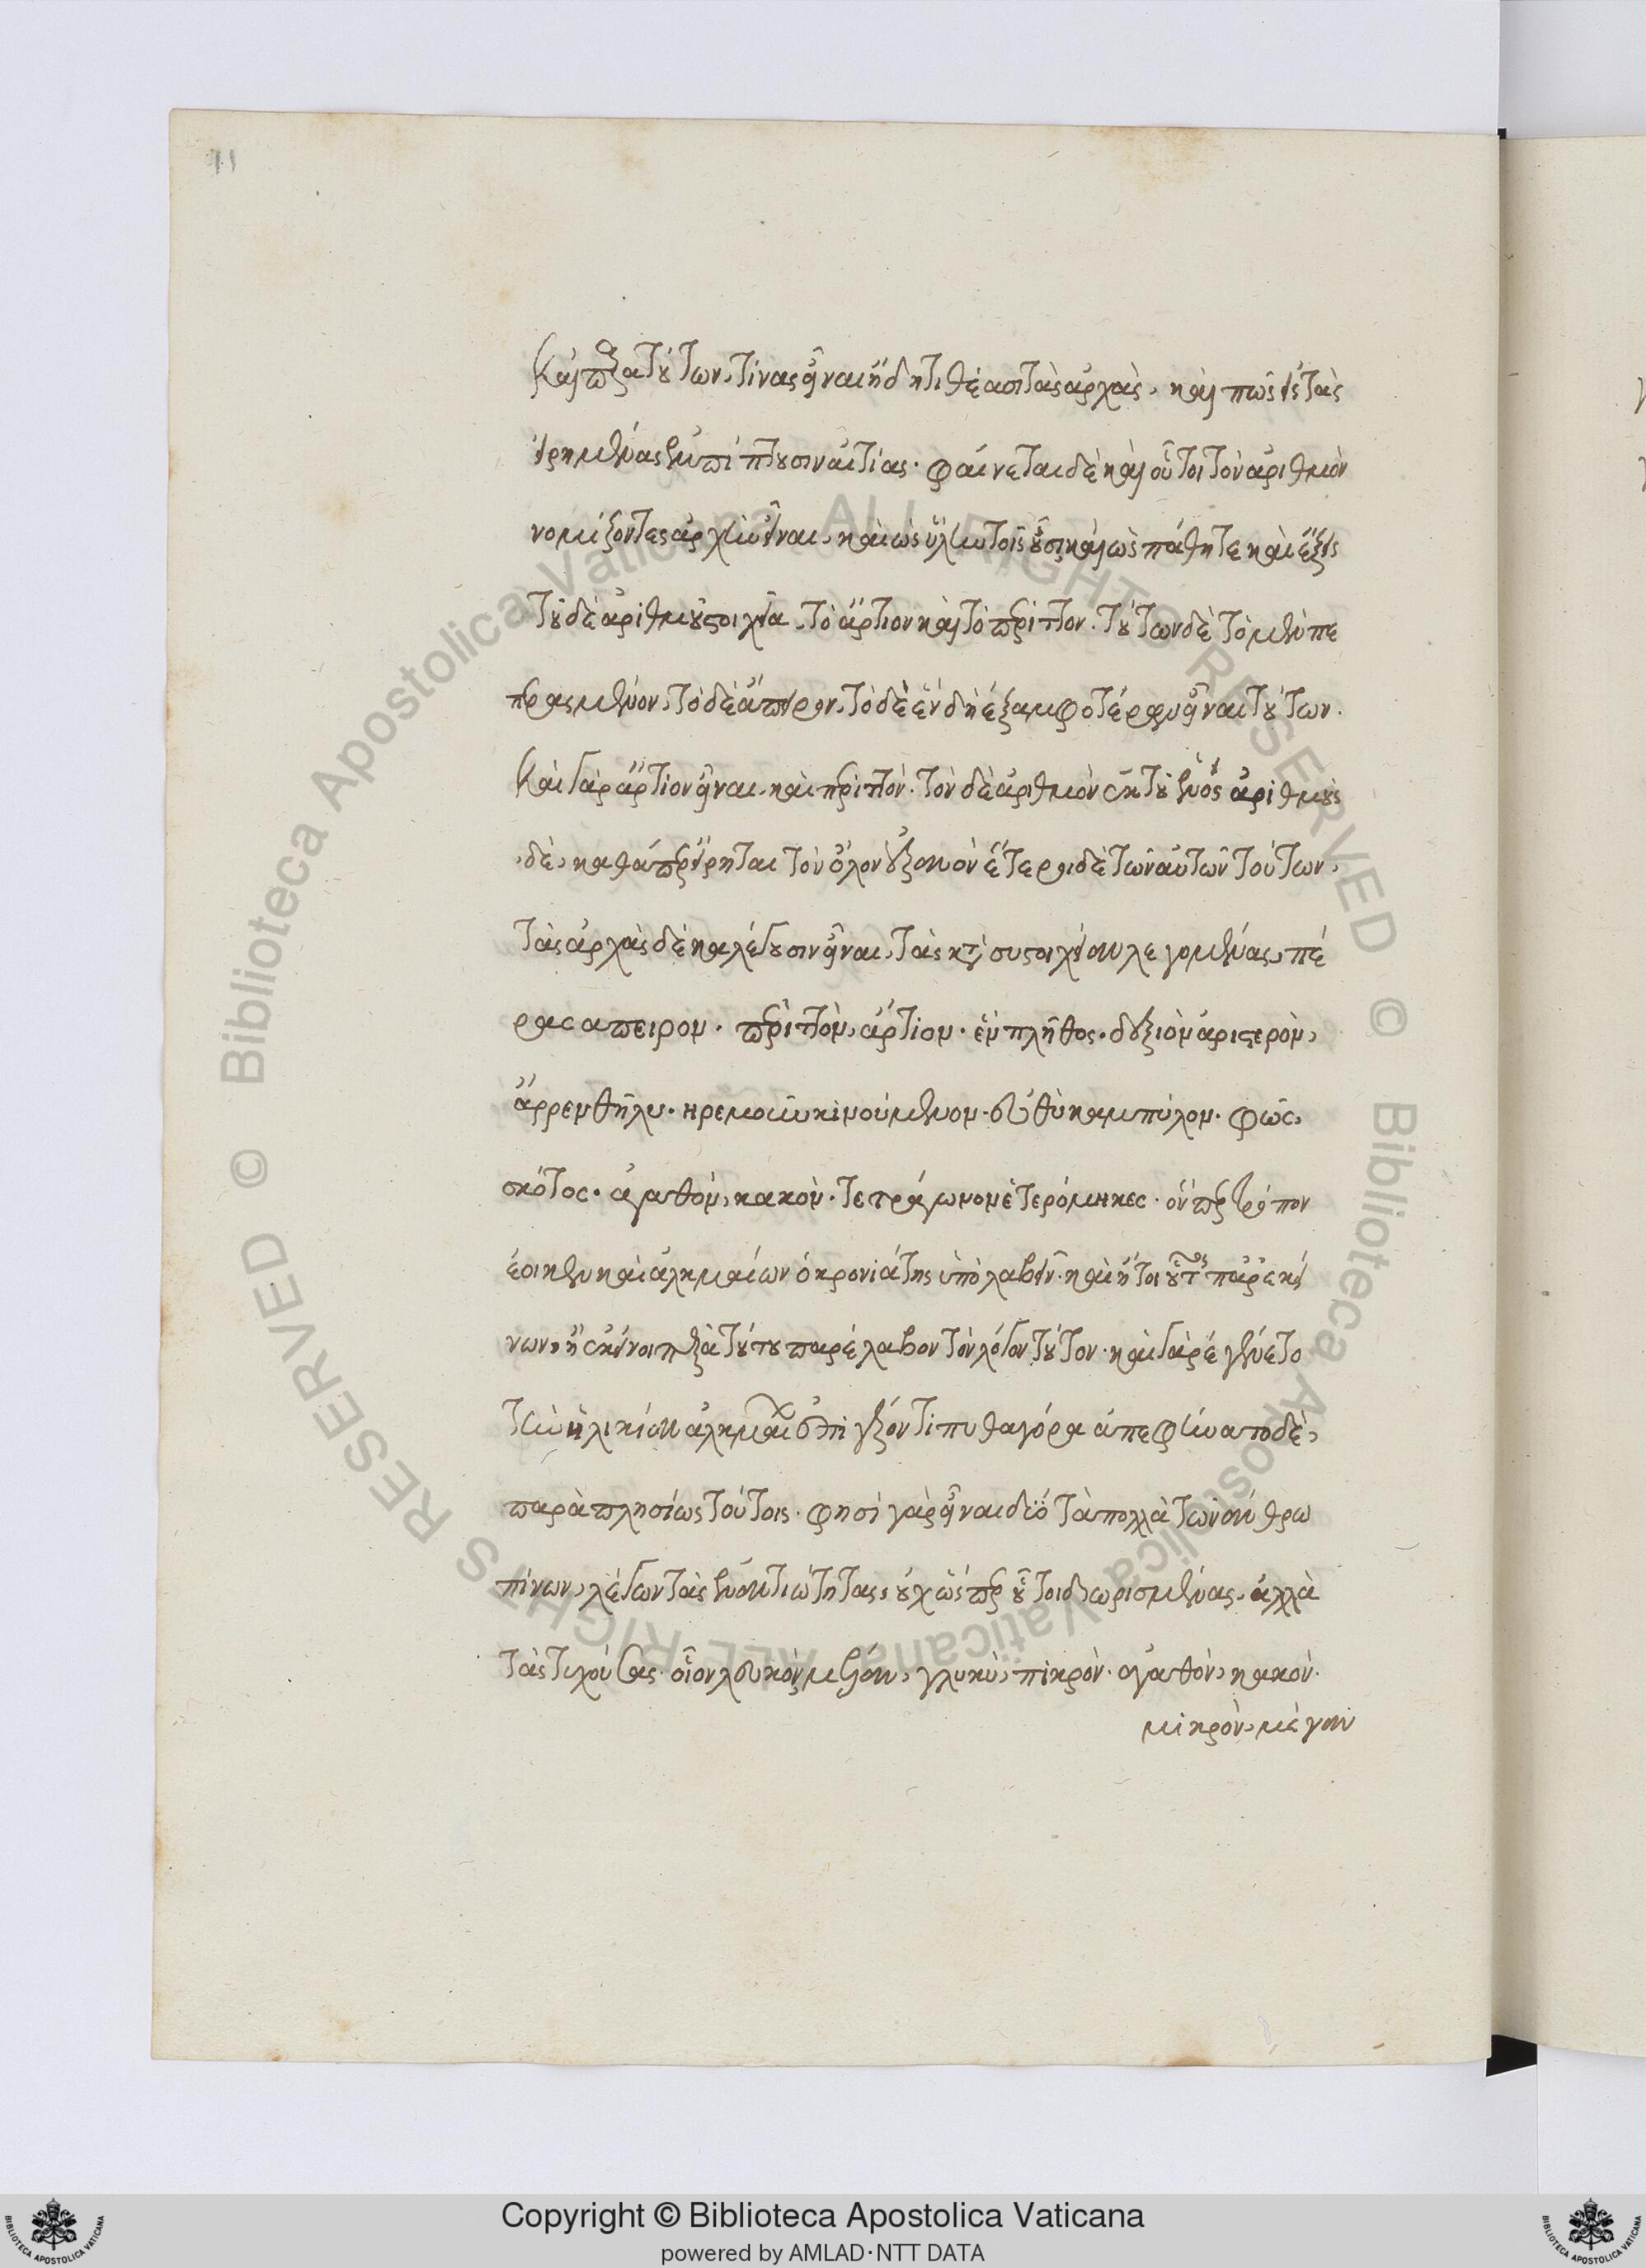 11
Καὶ παρὰ τούτων, τίνας εἶναι ἤδη τιθέασι τὰς ἀρχὰς, καὶ πῶς εἰς τὰς
εἰρημένας ἐμπίπτουσιν αἰτίας. φαίνεται δὲ καὶ οὗτοι τὸν ἀριθμὸν
νομίζοντες ἀρχὴν εἶναι, καὶ ὡς ὕλην τοῖς οὖσι καὶ ὡς πάθη τε καὶ ἕξεις
τοῦ δὲ ἀριθμοῦ στοιχεῖα, τὸ ἄρτιον καὶ τὸ περιττον. τούτων δὲ τὸ μὲν πε
περασμένον, τὸ δὲ ἄπειρον, τὸ δὲ ἓν δὴ ἐξ αμφοτέρων εἶναι τούτων.
Καὶ γὰρ ἄρτιον εἶναι, καὶ περιττόν. τὸν δὲ ἀριθμὸν ἐκ τοῦ ἑνὸς ἀριθμοὺς
δὲ, καθάπερ εἴρηται τὸν ὅλον οὐρανὸν ἕτεροι δὲ τῶν αὐτῶν τούτων,
τὰς ἀρχὰς δέκα λέγουσιν εἶναι, τὰς κατὰ συστοιχίαν λεγομένας, πέ
ρας απειρον. περιττὸν, ἄρτιον. ἓν πλῆθος. δεξιὸν ἀριστερὸν,
ἄρρεν θῆλυ. ηρεμοῦν κινούμενον. εὐθὺ καμπύλον. φῶς,
σκότος. ἀγαθὸν, κακὸν. τετράγωνον ἑτερόμηκες. ὅνπερ τρόπον
ἔοικεν καὶ ἀλκμαίων ὁ κρονιάτης ὑπολαβεῖν. καὶ ἤτοι οὗτος παρ' ἐκεί
νων, ἢ ἐκεῖνοι παρὰ τούτου παρέλαβον τὸν λόγον τοῦτον. καὶ γὰρ ἐγένετο
τὴν ἡλικίαν ἀλκμαίων ἐπὶ γέροντι πυθαγόρα ἀπεφήνατο δὲ,
παραπλησίως τούτοις. φησὶ γὰρ εἶναι δύο τὰ πολλὰ τῶν ἀνθρω
πίνων, λέγων τὰς ἐναντιώτητας, οὐχ ὥσπερ οὗτοι διωρισμένας, ἀλλὰ
τὰς τυχούσας. οἷον λευκὸν μέλαν, γλυκὺ, πικρὸν. αγαθὸν, κακὸν.
μικρὸν, μέγαν
Copyright © Biblioteca Apostolica Vaticana
powered by AMLAD·NTT DATA